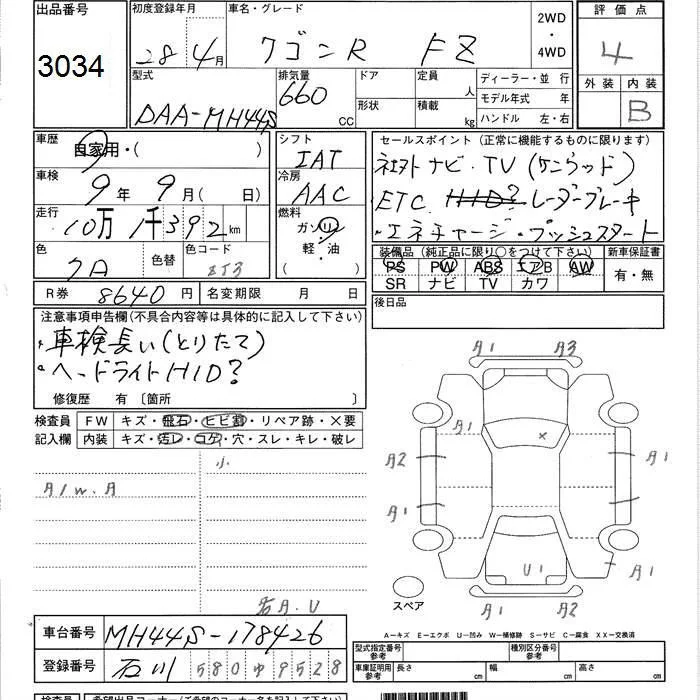 出品番号
3034
初度登録年月
28年4月
車名・グレード
ワゴンR FZ
2WD
・
4WD
評価点
4
型式
DAA-MH44S
排気量
660
CC
ドア
形状
定員
人
積載
kg
ディーラー・並 行
モデル年式 年
ハンドル 左・右
外装
内装
B
車歴
自家用・( )
シフト
IAT
セールスポイント(正常に機能するものに限ります)
ナビ・TV(ケンウッド)
ETC HID? レーダーブレーキ
・エネチャージ・プッシュスタート
車検
9年 9月( 日)
冷房
AAC
走行
10万1千392km
燃料
ガソリン
軽・油
( )
色
クロ
色替
色コード
ZJ3
装備品(純正品に限り○をつけて下さい)
PS PW ABS エアB AW
SR ナビ TV カワ
新車保証書
有・無
R券 8640円
名変期限 月 日
後日品
注意事項申告欄(不具合内容等は具体的に記入して下さい)
・車検長い(とりたて)
・ヘッドライトHID?
修復歴 有 〔箇所 〕
検査員
記入欄
FW キズ・飛石・ヒビ割・リペア跡・×要
内装 キズ・汚レ・コゲ・穴・スレ・キレ・破レ
小
A1 A3
A1
×
A2
A1
A1
A1
U1
A1
A2
スペア
A-キズ E-エクボ U-凹み W-補修跡 S-サビ C-腐食 XX-交換済
車台番号
MH44S-178426
登録番号
石川 580ゆ9528
型式指定番号
参考
種別区分番号
参考
車庫証明用
参考
長さ cm
幅 cm
高さ cm
検査員
希望出品コーナー(ご希望のコーナー名を記入下さい)